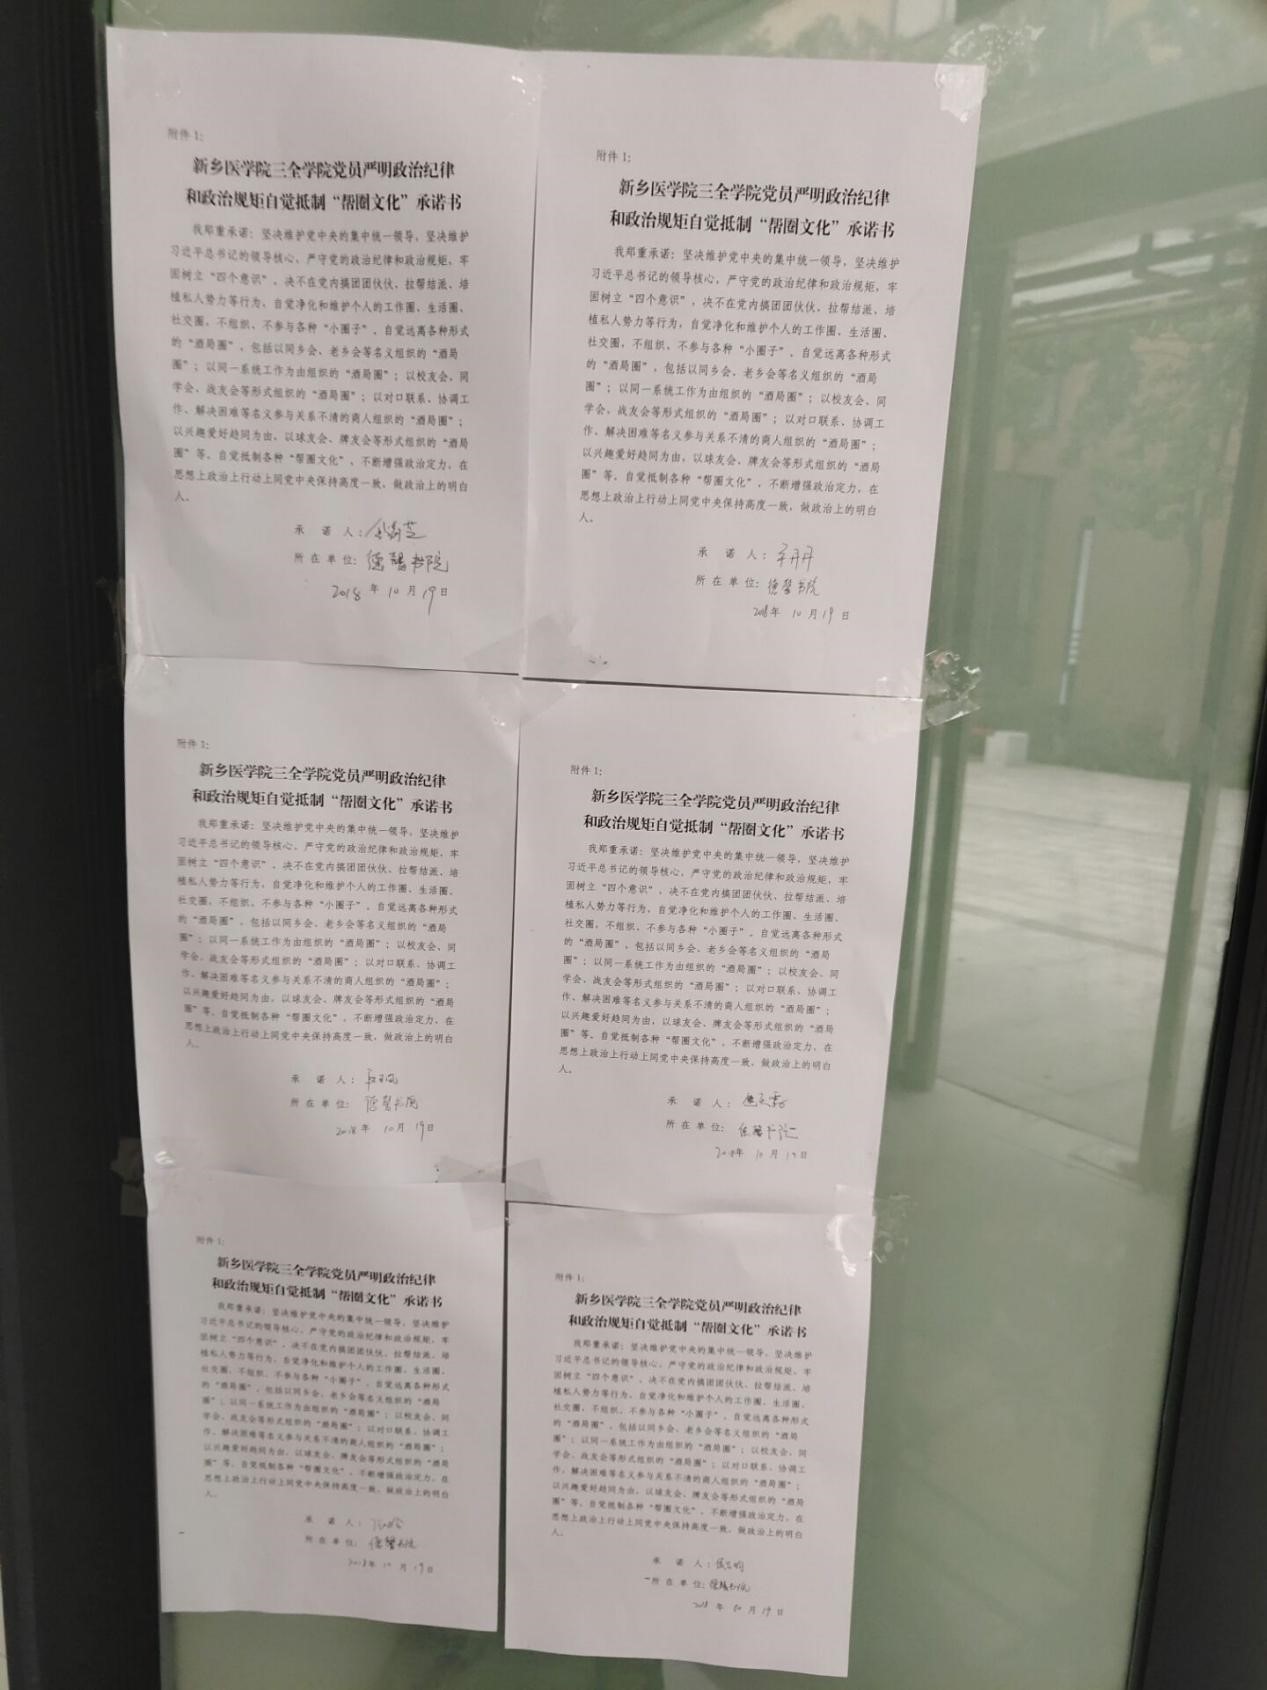 附件1：
新乡医学院三全学院党员严明政治纪律
和政治规矩自觉抵制“帮圈文化”承诺书
我郑重承诺：坚决维护党中央的集中统一领导，坚决维护
习近平总书记的领导核心，严守党的政治纪律和政治规矩，牢
固树立“四个意识”，决不在党内搞团团伙伙、拉帮结派、培
植私人势力等行为，自觉净化和维护个人的工作圈、生活圈、
社交圈，不组织、不参与各种“小圈子”，自觉远离各种形式
的“酒局圈”，包括以同乡会、老乡会等名义组织的“酒局
圈”；以同一系统工作为由组织的“酒局圈”；以校友会、同
学会、战友会等形式组织的“酒局圈”；以对口联系、协调工
作、解决困难等名义参与关系不清的商人组织的“酒局圈”；
以兴趣爱好趋同为由，以球友会、牌友会等形式组织的“酒局
圈”等，自觉抵制各种“帮圈文化”，不断增强政治定力，在
思想上政治上行动上同党中央保持高度一致，做政治上的明白
人。
承诺人：
所在单位：德馨书院
2018年10月19日
附件1：
新乡医学院三全学院党员严明政治纪律
和政治规矩自觉抵制“帮圈文化”承诺书
我郑重承诺：坚决维护党中央的集中统一领导，坚决维护
习近平总书记的领导核心，严守党的政治纪律和政治规矩，牢
固树立“四个意识”，决不在党内搞团团伙伙、拉帮结派、培
植私人势力等行为，自觉净化和维护个人的工作圈、生活圈、
社交圈，不组织、不参与各种“小圈子”，自觉远离各种形式
的“酒局圈”，包括以同乡会、老乡会等名义组织的“酒局
圈”；以同一系统工作为由组织的“酒局圈”；以校友会、同
学会、战友会等形式组织的“酒局圈”；以对口联系、协调工
作、解决困难等名义参与关系不清的商人组织的“酒局圈”；
以兴趣爱好趋同为由，以球友会、牌友会等形式组织的“酒局
圈”等，自觉抵制各种“帮圈文化”，不断增强政治定力，在
思想上政治上行动上同党中央保持高度一致，做政治上的明白
人。
承诺人：辛丹丹
所在单位：德馨书院
2018年10月19日
附件1：
新乡医学院三全学院党员严明政治纪律
和政治规矩自觉抵制“帮圈文化”承诺书
我郑重承诺：坚决维护党中央的集中统一领导，坚决维护
习近平总书记的领导核心，严守党的政治纪律和政治规矩，牢
固树立“四个意识”，决不在党内搞团团伙伙、拉帮结派、培
植私人势力等行为，自觉净化和维护个人的工作圈、生活圈、
社交圈，不组织、不参与各种“小圈子”，自觉远离各种形式
的“酒局圈”，包括以同乡会、老乡会等名义组织的“酒局
圈”；以同一系统工作为由组织的“酒局圈”；以校友会、同
学会、战友会等形式组织的“酒局圈”；以对口联系、协调工
作、解决困难等名义参与关系不清的商人组织的“酒局圈”；
以兴趣爱好趋同为由，以球友会、牌友会等形式组织的“酒局
圈”等，自觉抵制各种“帮圈文化”，不断增强政治定力，在
思想上政治上行动上同党中央保持高度一致，做政治上的明白
人。
承诺人：
所在单位：德馨书院
2018年10月19日
附件1：
新乡医学院三全学院党员严明政治纪律
和政治规矩自觉抵制“帮圈文化”承诺书
我郑重承诺：坚决维护党中央的集中统一领导，坚决维护
习近平总书记的领导核心，严守党的政治纪律和政治规矩，牢
固树立“四个意识”，决不在党内搞团团伙伙、拉帮结派、培
植私人势力等行为，自觉净化和维护个人的工作圈、生活圈、
社交圈，不组织、不参与各种“小圈子”，自觉远离各种形式
的“酒局圈”，包括以同乡会、老乡会等名义组织的“酒局
圈”；以同一系统工作为由组织的“酒局圈”；以校友会、同
学会、战友会等形式组织的“酒局圈”；以对口联系、协调工
作、解决困难等名义参与关系不清的商人组织的“酒局圈”；
以兴趣爱好趋同为由，以球友会、牌友会等形式组织的“酒局
圈”等，自觉抵制各种“帮圈文化”，不断增强政治定力，在
思想上政治上行动上同党中央保持高度一致，做政治上的明白
人。
承诺人：
所在单位：德馨书院
2018年10月19日
附件1：
新乡医学院三全学院党员严明政治纪律
和政治规矩自觉抵制“帮圈文化”承诺书
我郑重承诺：坚决维护党中央的集中统一领导，坚决维护
习近平总书记的领导核心，严守党的政治纪律和政治规矩，牢
固树立“四个意识”，决不在党内搞团团伙伙、拉帮结派、培
植私人势力等行为，自觉净化和维护个人的工作圈、生活圈、
社交圈，不组织、不参与各种“小圈子”，自觉远离各种形式
的“酒局圈”，包括以同乡会、老乡会等名义组织的“酒局
圈”；以同一系统工作为由组织的“酒局圈”；以校友会、同
学会、战友会等形式组织的“酒局圈”；以对口联系、协调工
作、解决困难等名义参与关系不清的商人组织的“酒局圈”；
以兴趣爱好趋同为由，以球友会、牌友会等形式组织的“酒局
圈”等，自觉抵制各种“帮圈文化”，不断增强政治定力，在
思想上政治上行动上同党中央保持高度一致，做政治上的明白
人。
承诺人：
所在单位：德馨书院
2018年10月19日
附件1：
新乡医学院三全学院党员严明政治纪律
和政治规矩自觉抵制“帮圈文化”承诺书
我郑重承诺：坚决维护党中央的集中统一领导，坚决维护
习近平总书记的领导核心，严守党的政治纪律和政治规矩，牢
固树立“四个意识”，决不在党内搞团团伙伙、拉帮结派、培
植私人势力等行为，自觉净化和维护个人的工作圈、生活圈、
社交圈，不组织、不参与各种“小圈子”，自觉远离各种形式
的“酒局圈”，包括以同乡会、老乡会等名义组织的“酒局
圈”；以同一系统工作为由组织的“酒局圈”；以校友会、同
学会、战友会等形式组织的“酒局圈”；以对口联系、协调工
作、解决困难等名义参与关系不清的商人组织的“酒局圈”；
以兴趣爱好趋同为由，以球友会、牌友会等形式组织的“酒局
圈”等，自觉抵制各种“帮圈文化”，不断增强政治定力，在
思想上政治上行动上同党中央保持高度一致，做政治上的明白
人。
承诺人：
所在单位：德馨书院
2018年10月19日